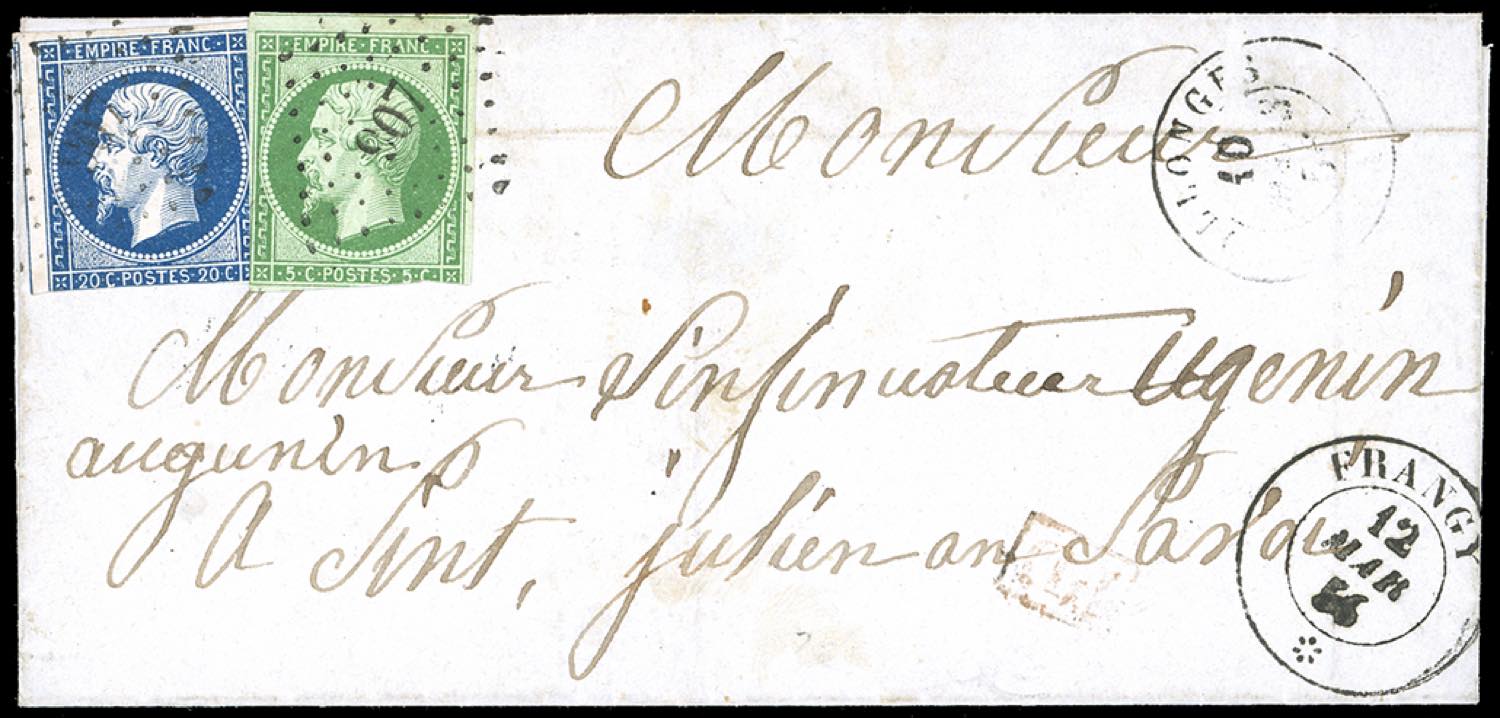 EMPIRE FRANC
20 C · POSTES · 20 C
EMPIRE FRANC
5 · C · POSTES · 5 · C
Monsieur
10
Monsieur l'insinuateur Ugenin
augunin
A Sint, julien an Savoi
FRANGY
12
MAR
56